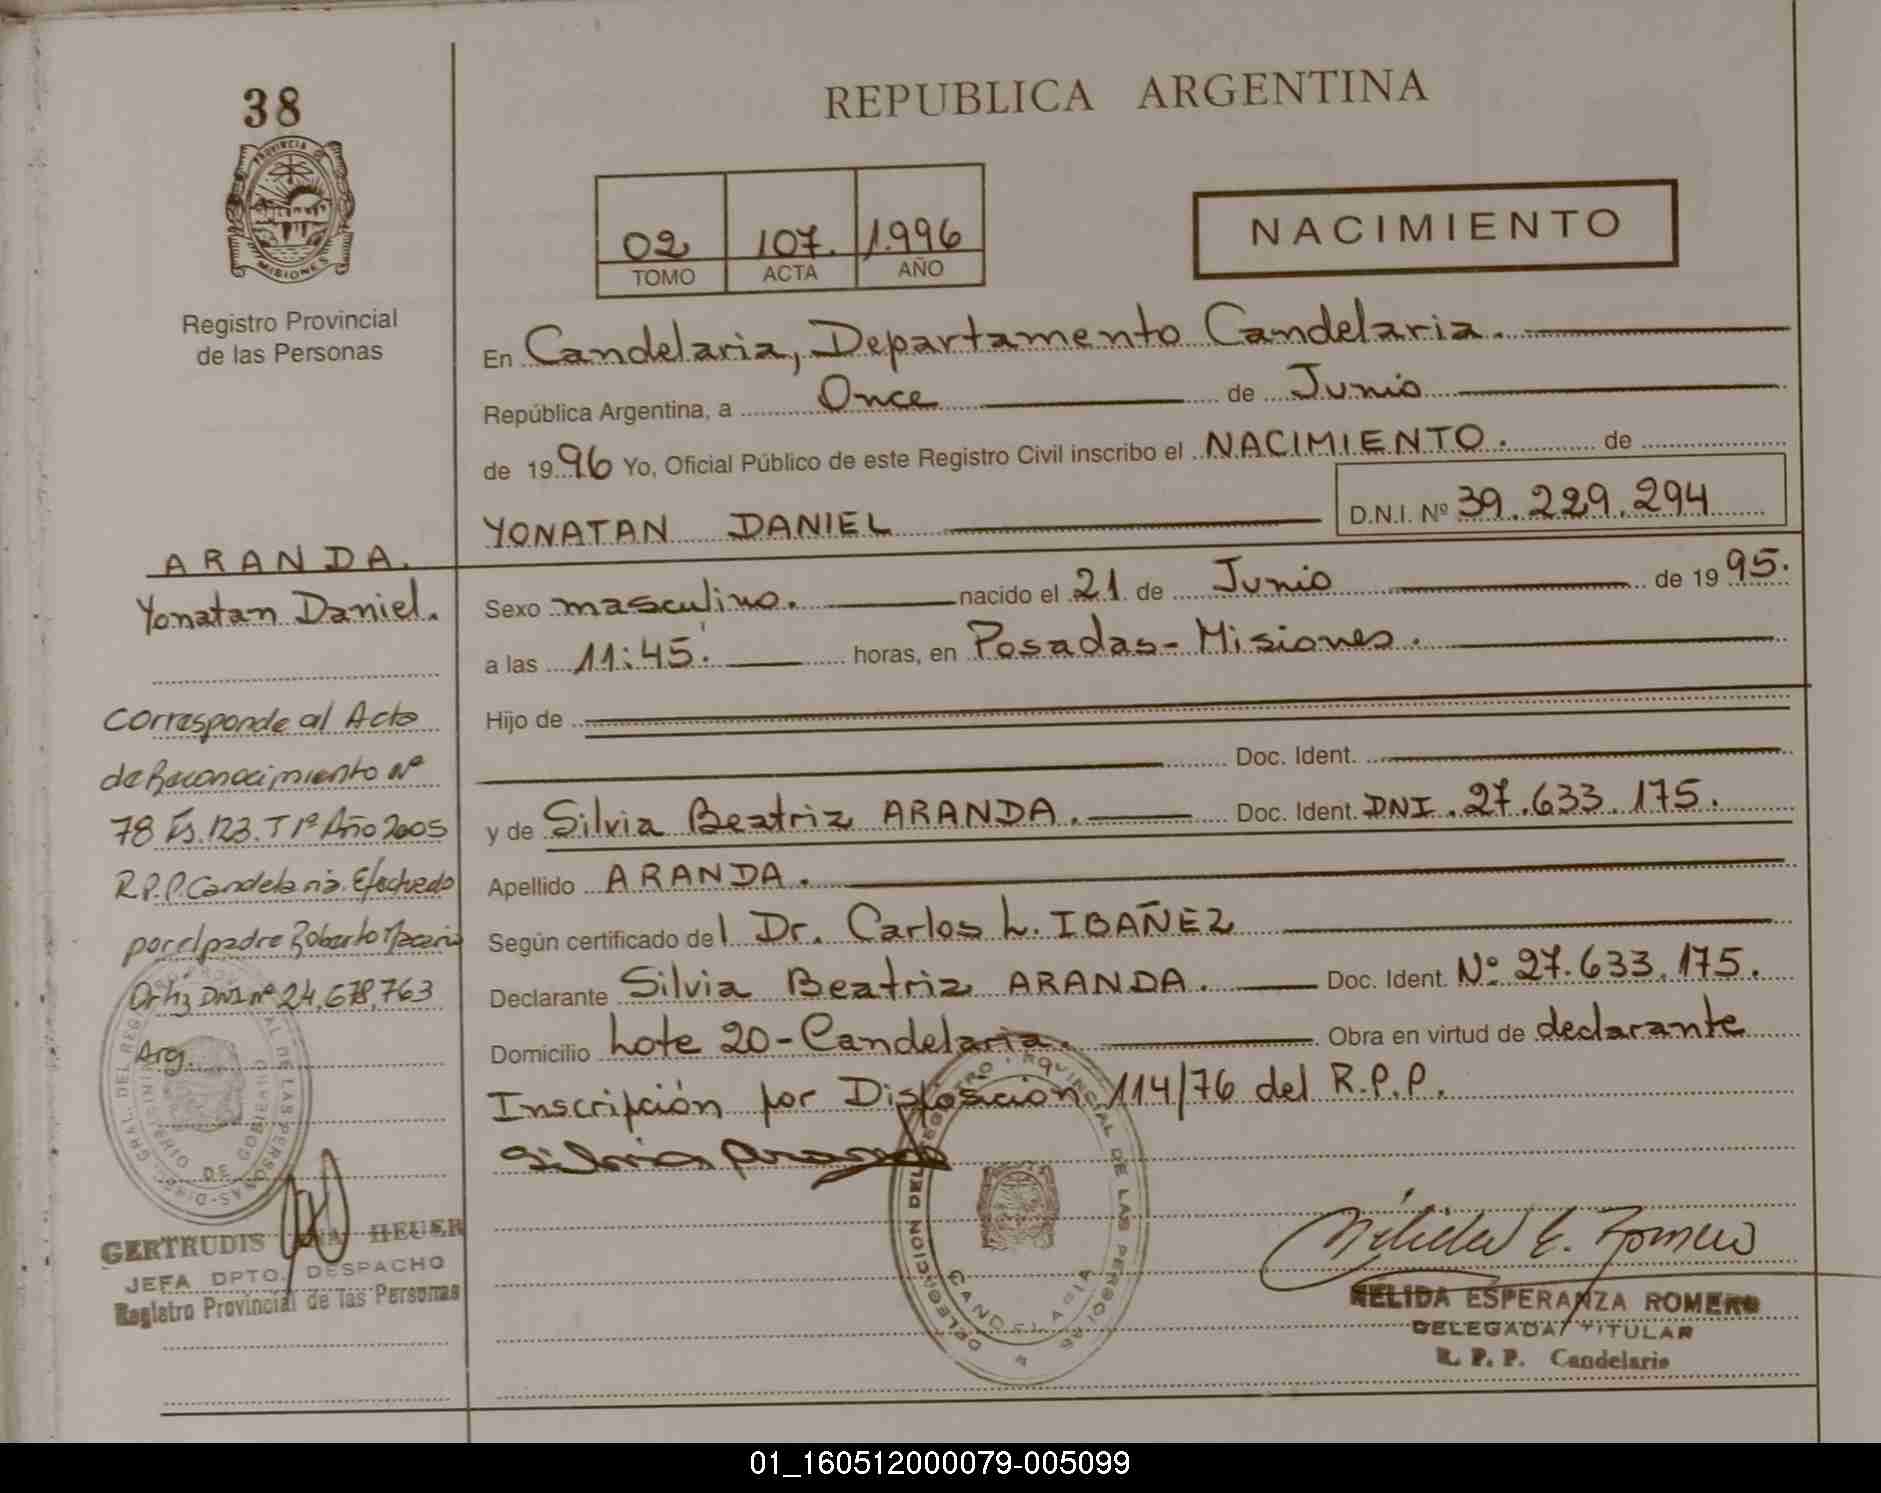 38
PROVINCIA DE
MISIONES
Registro Provincial
de las Personas
ARANDA.
Yonatan Daniel.
Corresponde al Acta
de Reconocimiento Nº
78 Fs. 123. T 1º Año 2005
R.P.P. Candelaria. Efectuado
por el padre Roberto Macario
Ortiz DNI nº 24.678.763
Arg.
GERTRUDIS HEUER
JEFA DPTO. DESPACHO
Registro Provincial de las Personas
REPUBLICA ARGENTINA
02 107. 1.996
TOMO ACTA AÑO
NACIMIENTO
En Candelaria, Departamento Candelaria.
República Argentina, a Once de Junio
de 1996 Yo, Oficial Público de este Registro Civil inscribo el NACIMIENTO. de
YONATAN DANIEL D.N.I. Nº 39.229.294
Sexo masculino. nacido el 21 de Junio de 1995.
a las 11:45. horas, en Posadas-Misiones.
Hijo de
Doc. Ident.
y de Silvia Beatriz ARANDA. Doc. Ident. DNI. 27.633.175.
Apellido ARANDA.
Según certificado del Dr. Carlos L. IBAÑEZ
Declarante Silvia Beatriz ARANDA. Doc. Ident. Nº 27.633.175.
Domicilio Lote 20-Candelaria. Obra en virtud de declarante
Inscripción por Disposición 114/76 del R.P.P.
Silvia Aranda
DELEGACION DEL REGISTRO PROVINCIAL DE LAS PERSONAS
CANDELARIA
Nélida E. Romero
NELIDA ESPERANZA ROMERO
DELEGADA TITULAR
R. P. P. Candelaria
01_160512000079-005099